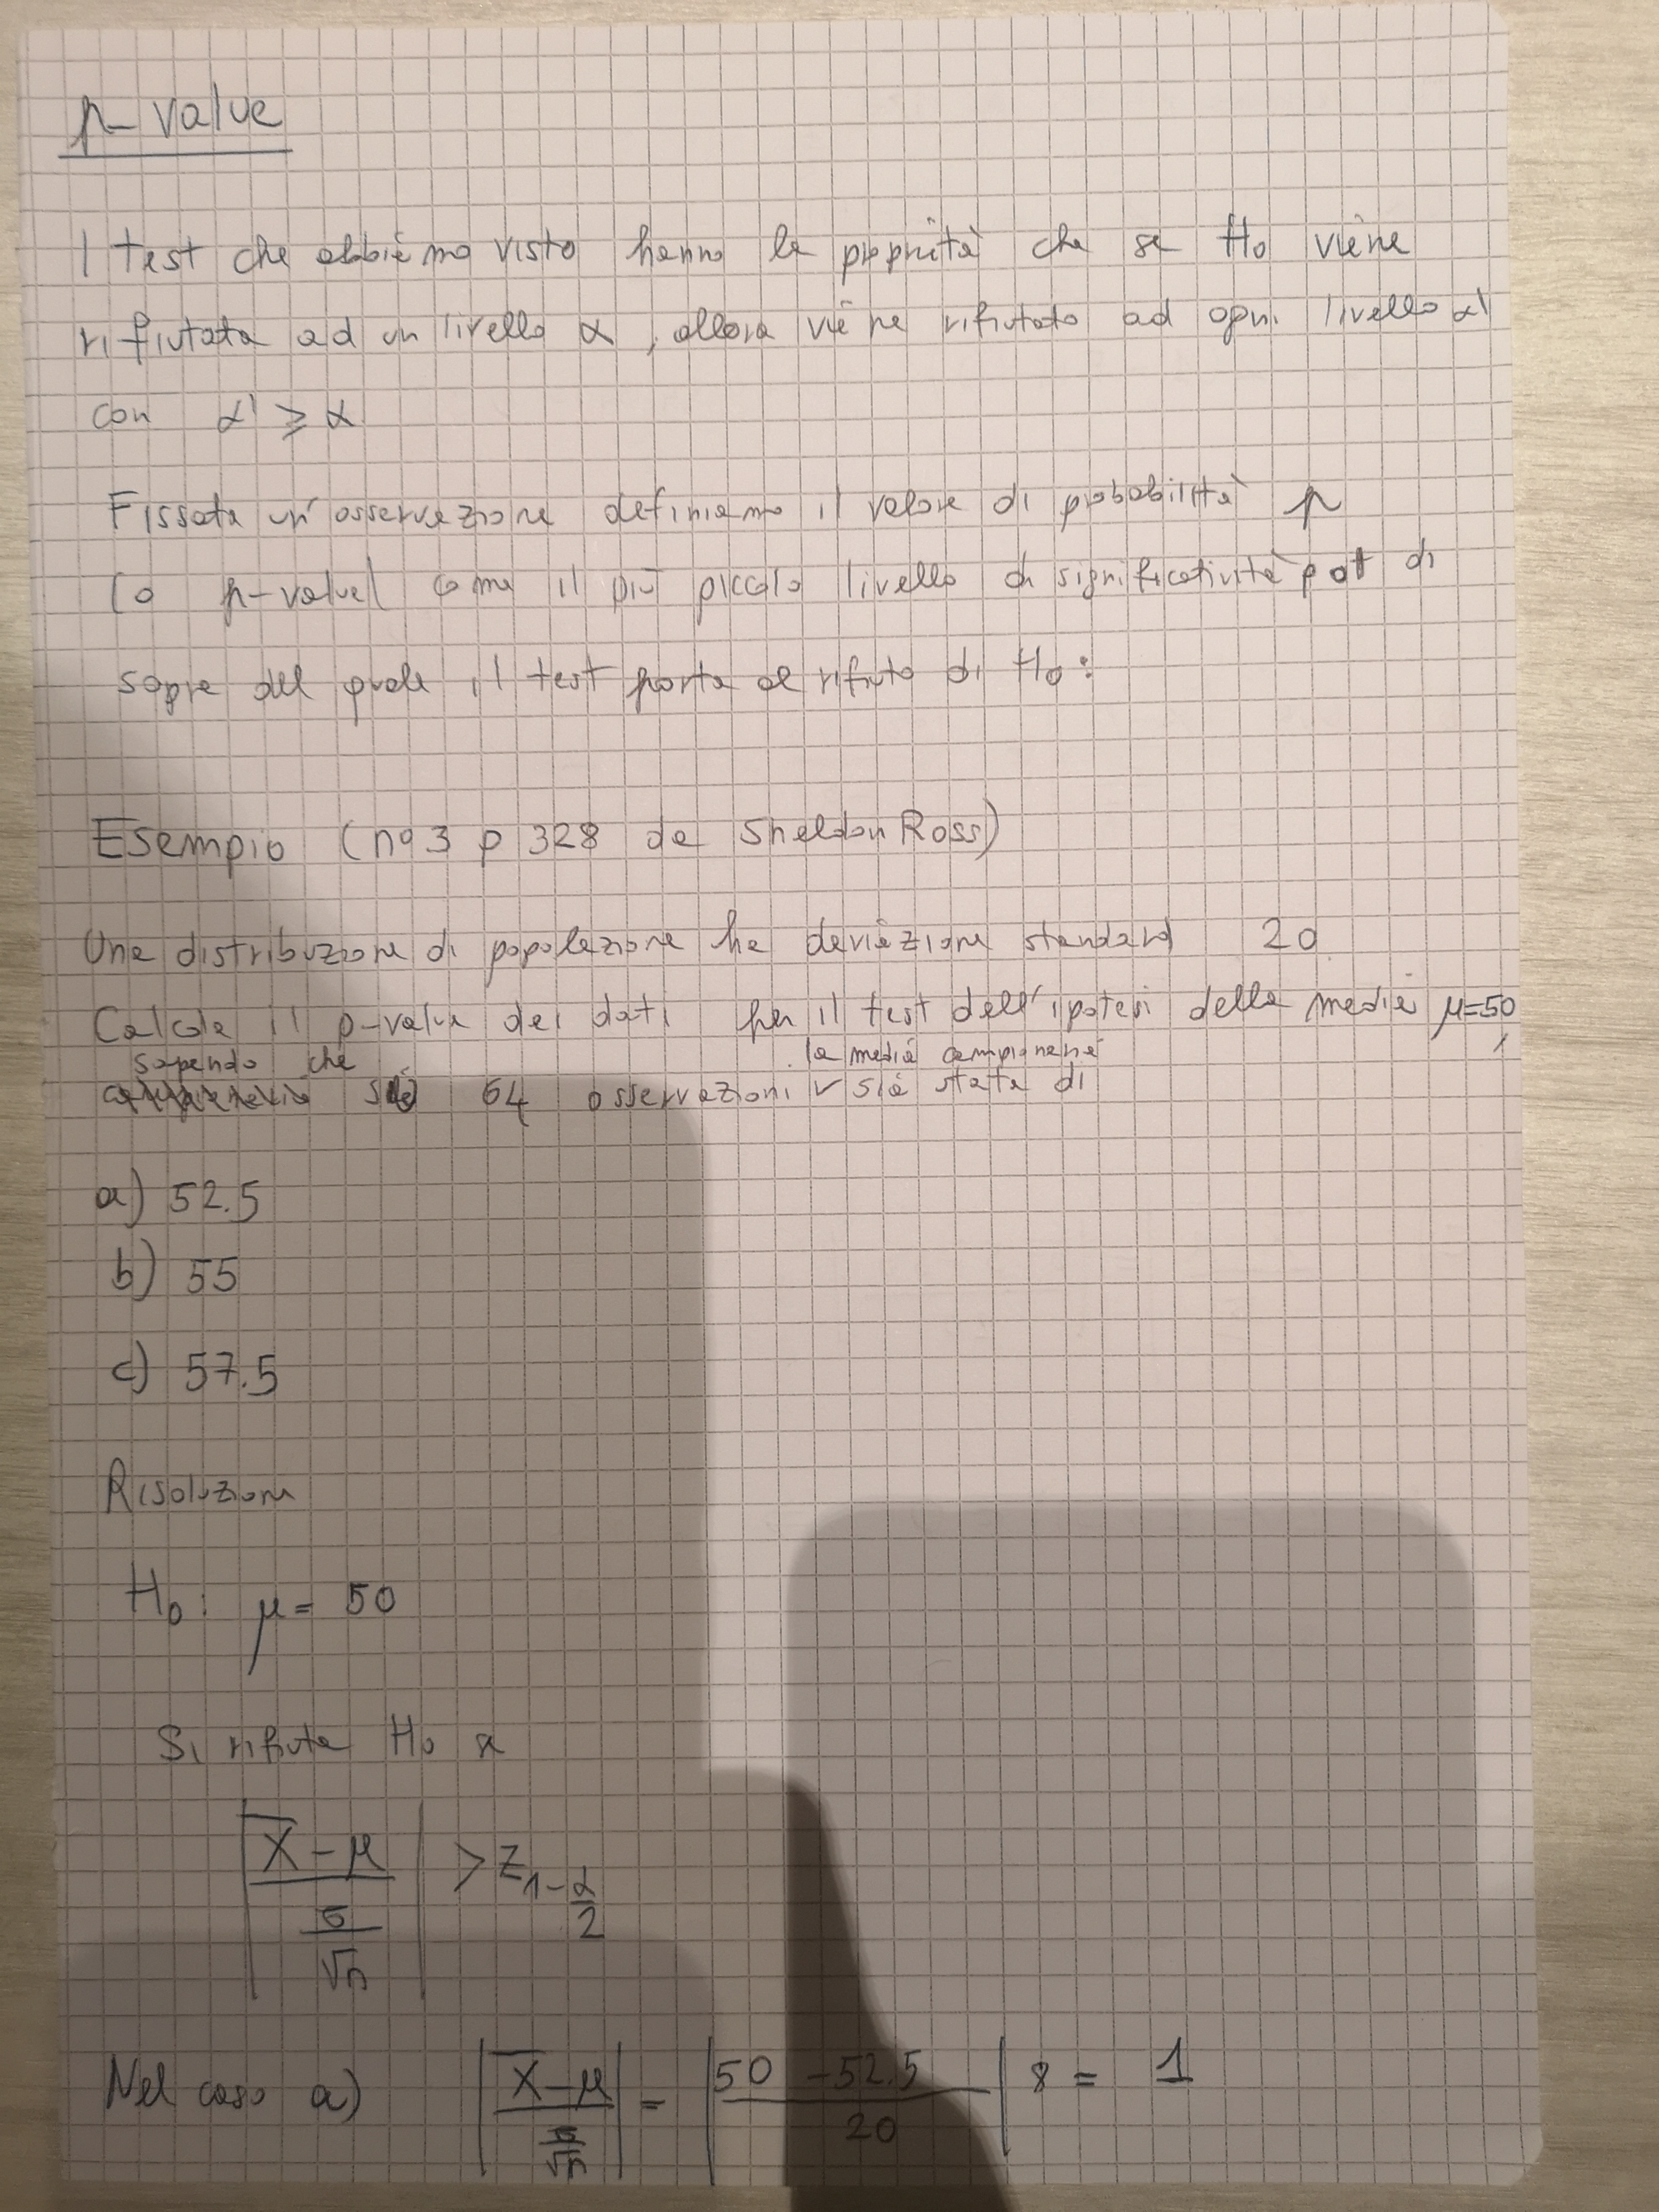 p-value
I test che abbiamo visto hanno la proprietà che se H₀ viene
rifiutata ad un livello α, allora viene rifiutato ad ogni livello α'
con α' ≥ α
Fissata un'osservazione definiamo il valore di probabilità p
(o p-value) come il più piccolo livello di significatività al di
sopra del quale il test porta al rifiuto di H₀:
Esempio (nº3 p 328 da Sheldon Ross)
Una distribuzione di popolazione ha deviazione standard 20
Calcola il p-value dei dati per il test dell'ipotesi della media μ=50,
sapendo che su 64 osservazioni la media campionaria sia stata di
a) 52.5
b) 55
c) 57.5
Risoluzione
H₀: μ = 50
Si rifiuta H₀ se
|(X̄ - μ)/(σ/√n)| > z_{1-α/2}
Nel caso a) |(X̄ - μ)/(σ/√n)| = |(50 - 52.5)/20| 8 = 1